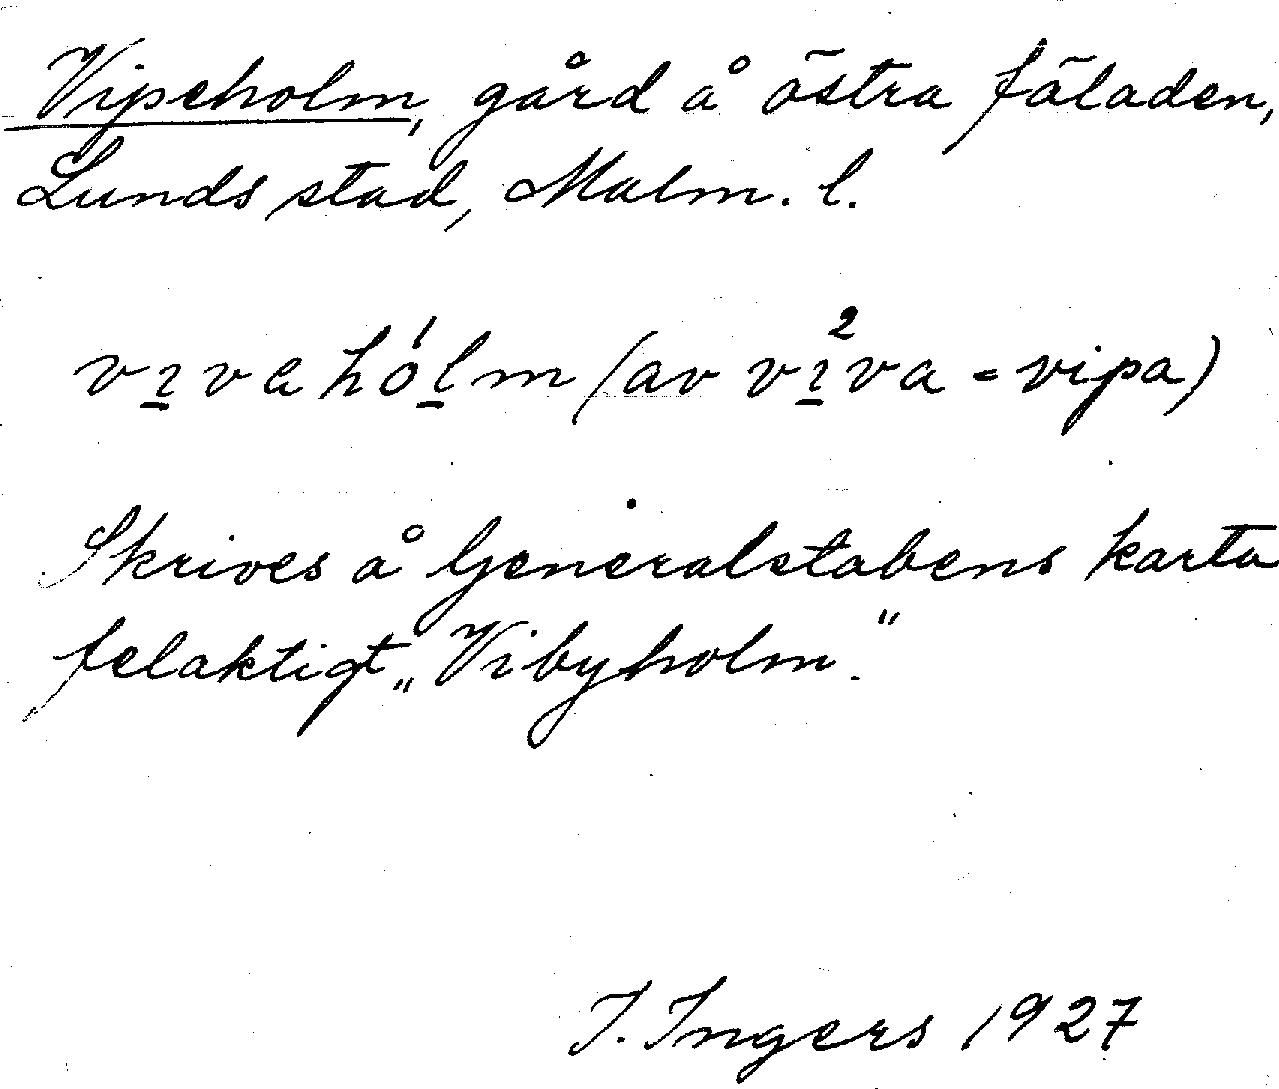 Vipeholm, gård å östra fäladen,
Lunds stad, Malm. l.
vı̲vahó̍l̲m (av vı̲²va = vipa)
Skrives å Generalstabens karta
felaktigt „Vibyholm".
I. Ingers 1927